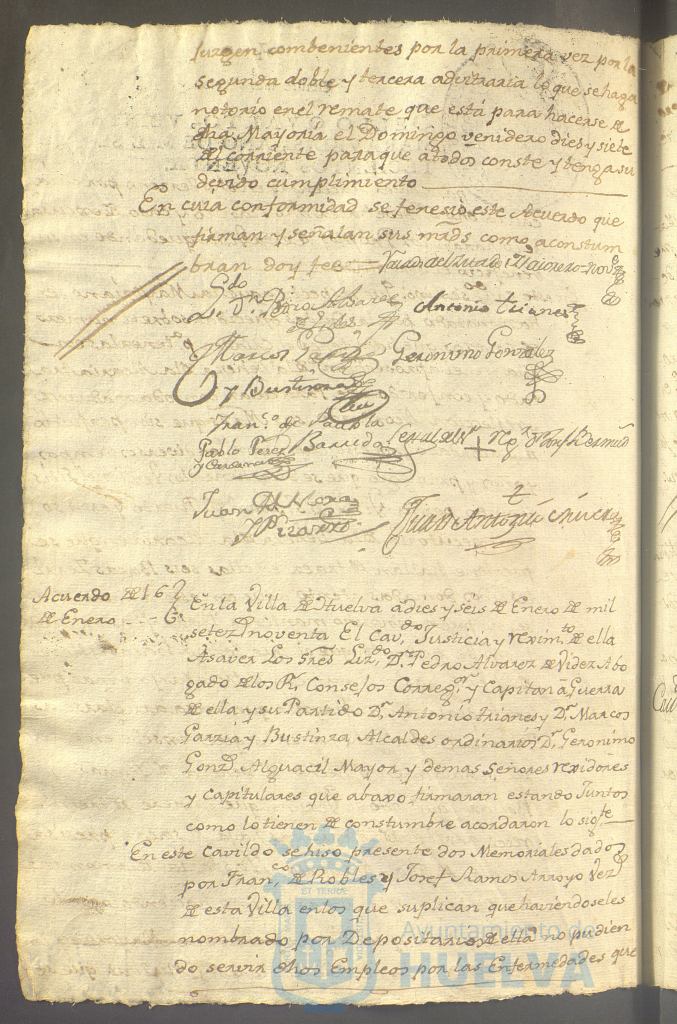 Jusgen combenientes por la primera vez por la
segunda doble y tercera advitraria lo que se haga
notorio en el remate que está para hacerse de
dha Mayoria el Domingo venidero dies y siete
del corriente para que a todos conste y tenga su
devido cumplimiento
En cuia conformidad se feresio este Acuerdo que
firman y señalan sus mrds como acostum
bran doy fee
Antonio trianes
Marcos Garzia Geronimo Gonzalez
y Bustinza
Fran.co de Paula
Pablo Perez Barreda
Juan
Pizarro Juan Antonio
Acuerdo de 16
de Enero
En la Villa de Huelva a dies y seis de Enero de mil
setez.s noventa El Cav.do Justicia y rexim.to de ella
Asaver Los Sres Liz.do D.n Pedro Alvarez de Videz Abo
gado de los R.s Consejos Correg.r y Capitan a Guerra
de ella y su Partido D.n Antonio trianes y D.n Marcos
Garzia y Bustinza Alcaldes ordinarios D.n Geronimo
Gonz.z Alguacil Mayor y demas Señores rexidores
y Capitulares que abaxo firmaran estando Juntos
como lo tienen de constumbre acordaron lo sig.te
En este Cavildo se hiso presente dos Memoriales dados
por Fran.co de Robles y Josef Ramos Arroyo Vez.s
de esta Villa en los que suplican que haviendoseles
nombrado por Depositarios de ella no pudien
do servir dhos Empleos por las Enfermedades que
Ayuntamiento de
HUELVA